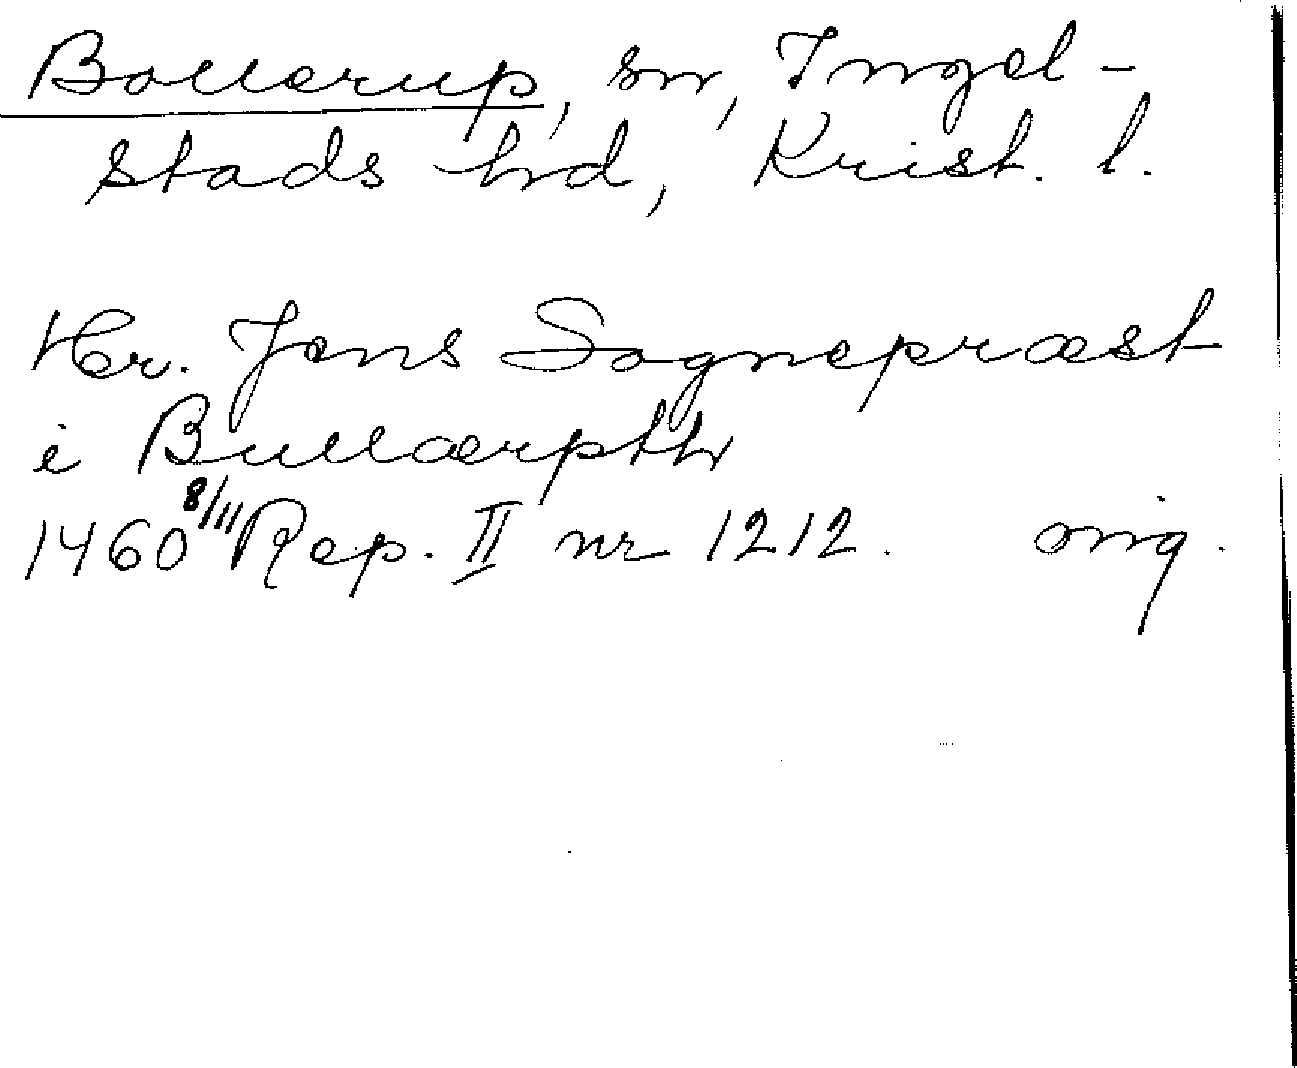 Bollerup, sn, Ingel-
stads hd, Krist. l.
Hr. Jens Sognepræst
i Bullærpthr
1460 8/11 Rep. II nr 1212. orig.